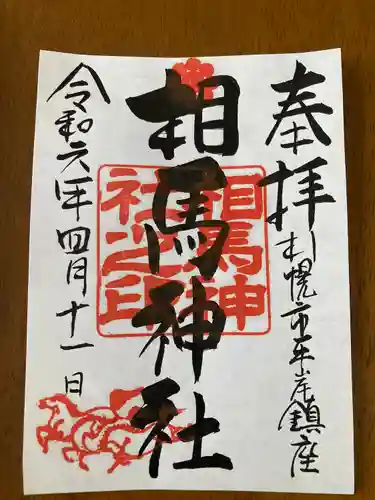 奉拝
札幌市平岸鎮座
相馬神社
相馬神
社之印
令和六年四月十一日